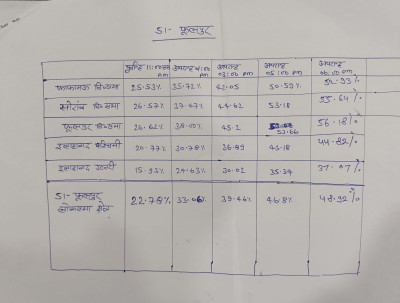 51- फूलपुर
पूर्वान्ह 11:00 am अपरान्ह 01:00 pm अपरान्ह 03:00 pm अपरान्ह 05:00 pm अपरान्ह 06:00 pm
फाफामऊ विधानसभा 25.53% 35.72% 42.05 50.59% 52.93%
सोरांव विधानसभा 26.57% 37.07% 44.62 53.18 55.64%
फूलपुर विधानसभा 26.62% 38.10% 45.2 53.66 56.18%
इलाहाबाद पश्चिमी 20.77% 30.78% 36.89 43.18 44.82%
इलाहाबाद उत्तरी 15.93% 24.63% 30.02 35.34 37.47%
51- फूलपुर लोकसभा क्षेत्र 22.78% 33.05% 39.46% 46.8% 48.92%